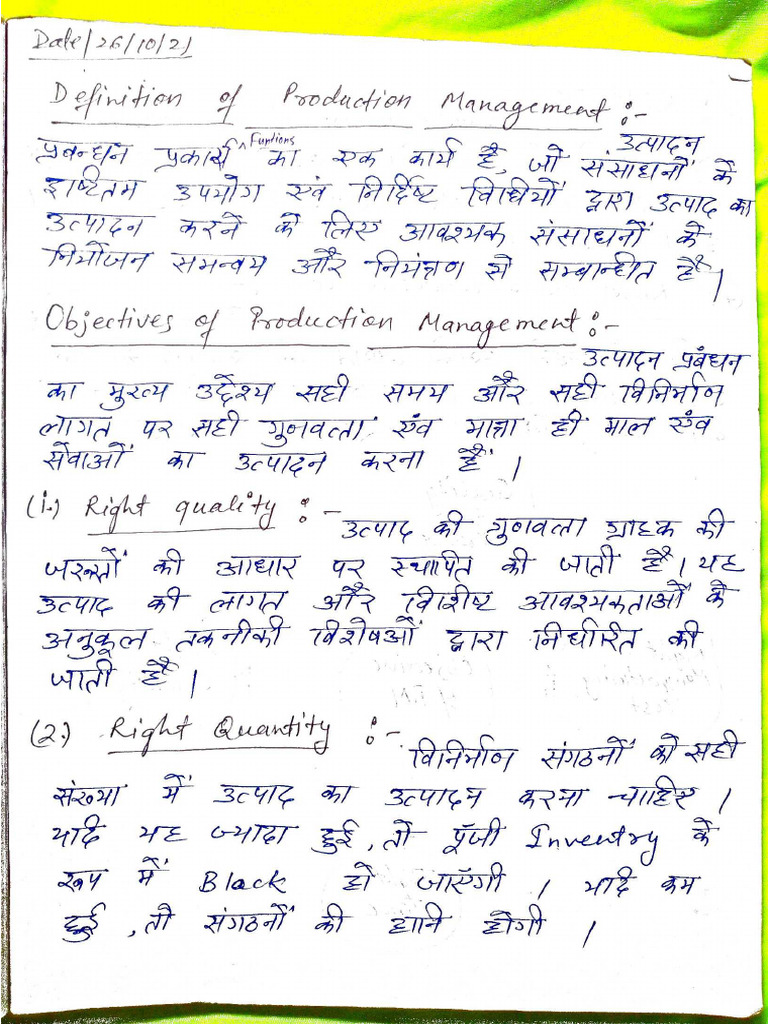 Date/26/10/21
Definition of Production Management :-
उत्पादन
प्रबन्धन प्रकार्य ^Funtions का एक कार्य है, जो संसाधनों के
इष्टितम उपयोग एवं निर्दिष्ट विधियों द्वारा उत्पाद का
उत्पादन करने के लिए आवश्यक संसाधनों के
नियोजन समन्वय और नियंत्रण से सम्बान्धीत है।
Objectives of Production Management :-
उत्पादन प्रबंधन
का मुख्य उद्देश्य सही समय और सही विनिर्माण
लागत पर सही गुनवत्ता एंव मात्रा ही माल एंव
सेवाओं का उत्पादन करना हैं।
(1.) Right quality :-
उत्पाद की गुनवत्ता ग्राहक की
जरूतों की आधार पर स्थापित की जाती है। यह
उत्पाद की लागत और विशिष्ट आवश्यकताओं के
अनुकूल तकनीकी विशेषओं द्वारा निर्धारित की
जाती है।
(2.) Right Quantity :-
विनिर्माण संगठनों को सही
संख्या में उत्पाद का उत्पादन करना चाहिए।
यदि यह ज्यादा हुई, तो पूँजी Inventry के
रूप में Black हो जाएँगी। यदि कम
हुई, तो संगठनों की हानि होगी।